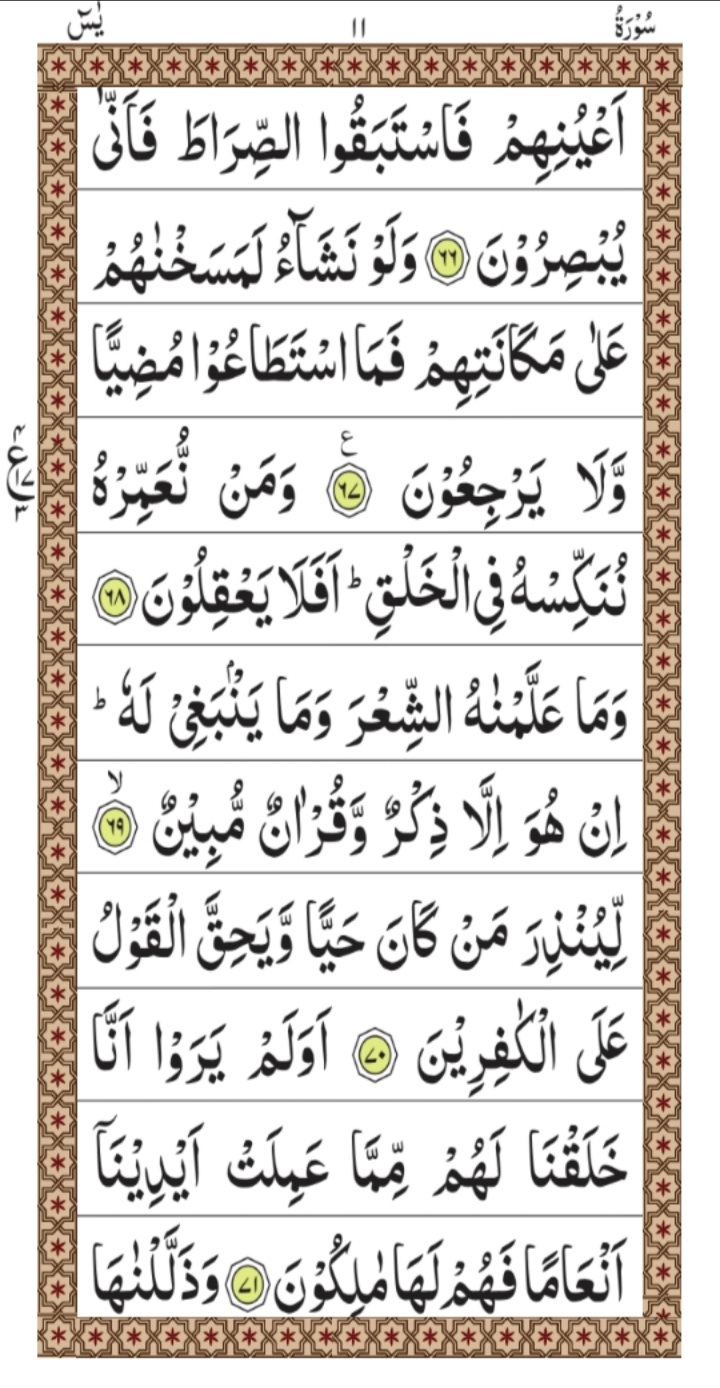 سُوْرَةُ ١١ يٰسٓ
اَعْيُنِهِمْ فَاسْتَبَقُوا الصِّرَاطَ فَاَنّٰى
يُبْصِرُوْنَ ﴿٦٦﴾ وَلَوْ نَشَآءُ لَمَسَخْنٰهُمْ
عَلٰى مَكَانَتِهِمْ فَمَا اسْتَطَاعُوْا مُضِيًّا
وَّلَا يَرْجِعُوْنَ ﴿٦٧﴾ ع وَمَنْ نُّعَمِّرْهُ
نُنَكِّسْهُ فِى الْخَلْقِ ؕ اَفَلَا يَعْقِلُوْنَ ﴿٦٨﴾
وَمَا عَلَّمْنٰهُ الشِّعْرَ وَمَا يَنْۢبَغِىْ لَهٗ ؕ
اِنْ هُوَ اِلَّا ذِكْرٌ وَّقُرْاٰنٌ مُّبِيْنٌ ۙ﴿٦٩﴾
لِّيُنْذِرَ مَنْ كَانَ حَيًّا وَّيَحِقَّ الْقَوْلُ
عَلَى الْكٰفِرِيْنَ ﴿٧٠﴾ اَوَلَمْ يَرَوْا اَنَّا
خَلَقْنَا لَهُمْ مِّمَّا عَمِلَتْ اَيْدِيْنَاۤ
اَنْعَامًا فَهُمْ لَهَا مٰلِكُوْنَ ﴿٧١﴾ وَذَلَّلْنٰهَا